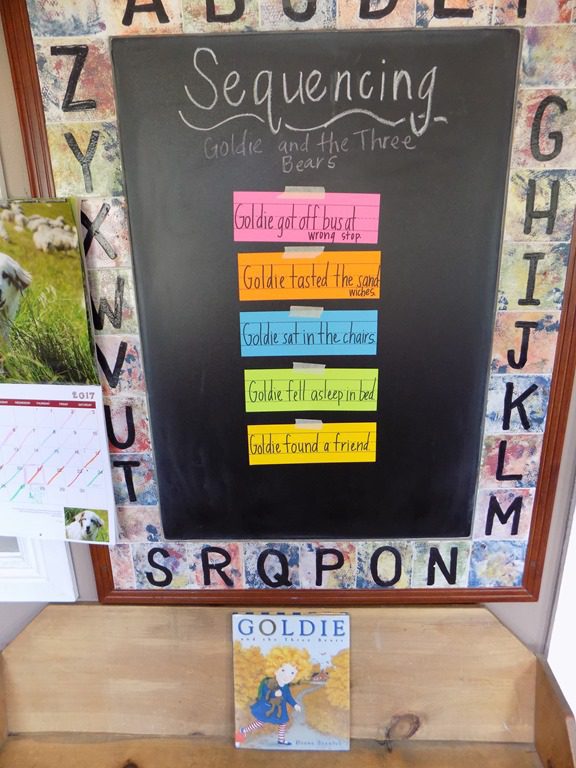 A B C D E F
G
H
I
J
K
L
M
N
O
P
Q
R
S
T
U
V
W
X
Y
Z
Sequencing
Goldie and the Three
Bears
Goldie got off bus at
wrong stop.
Goldie tasted the sand
wiches.
Goldie sat in the chairs.
Goldie fell asleep in bed
Goldie found a friend
2017
GOLDIE
and the Three Bears